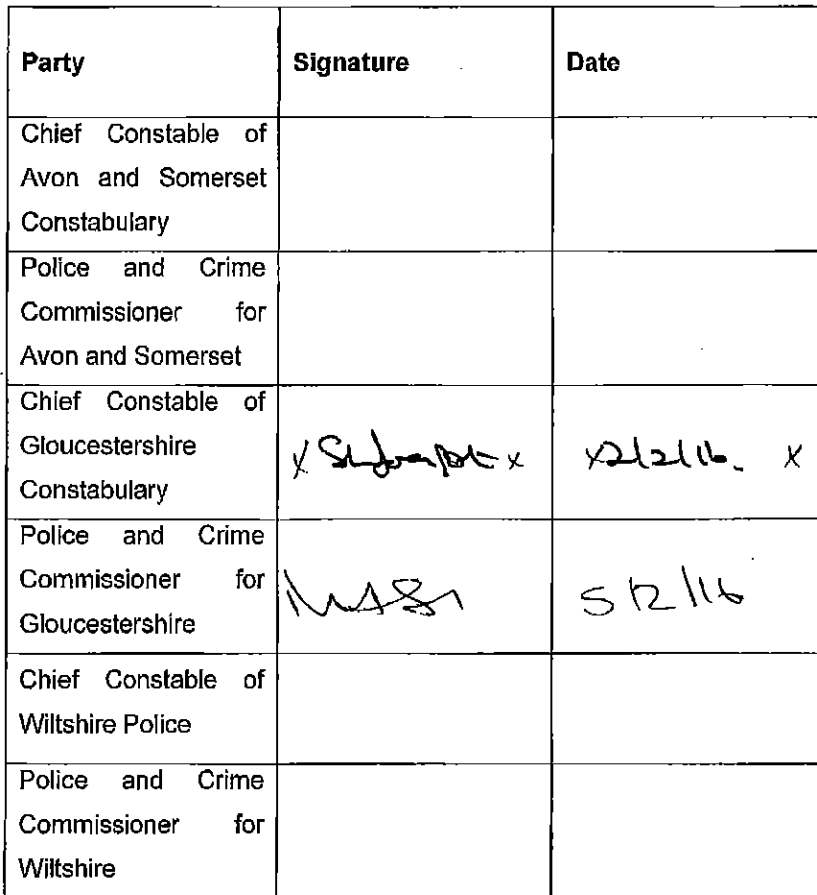 Party Signature Date
Chief Constable of
Avon and Somerset
Constabulary
Police and Crime
Commissioner for
Avon and Somerset
Chief Constable of
Gloucestershire
Constabulary
x x x2/2/16. x
Police and Crime
Commissioner for
Gloucestershire
5/2/16
Chief Constable of
Wiltshire Police
Police and Crime
Commissioner for
Wiltshire